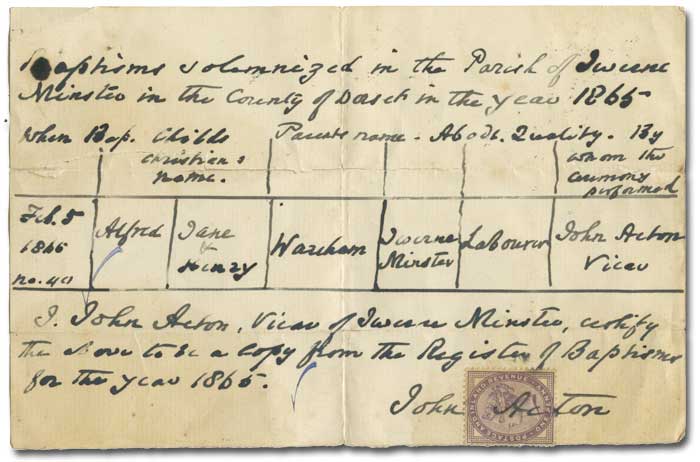 Baptisms solemnized in the Parish of Iwerne
Minster in the County of Dorset in the year 1865
When Bap. Childs Parents name. Abode. Quality. By
Christian whom the
name. ceremony
performed
Feb. 5 Alfred Jane Wareham Iwerne Labourer John Acton
1865 & Henry Minster Vicar
I, John Acton, Vicar of Iwerne Minster, certify
the above to be a copy from the Register of Baptisms
for the year 1865.
John Acton
POSTAGE AND INLAND REVENUE